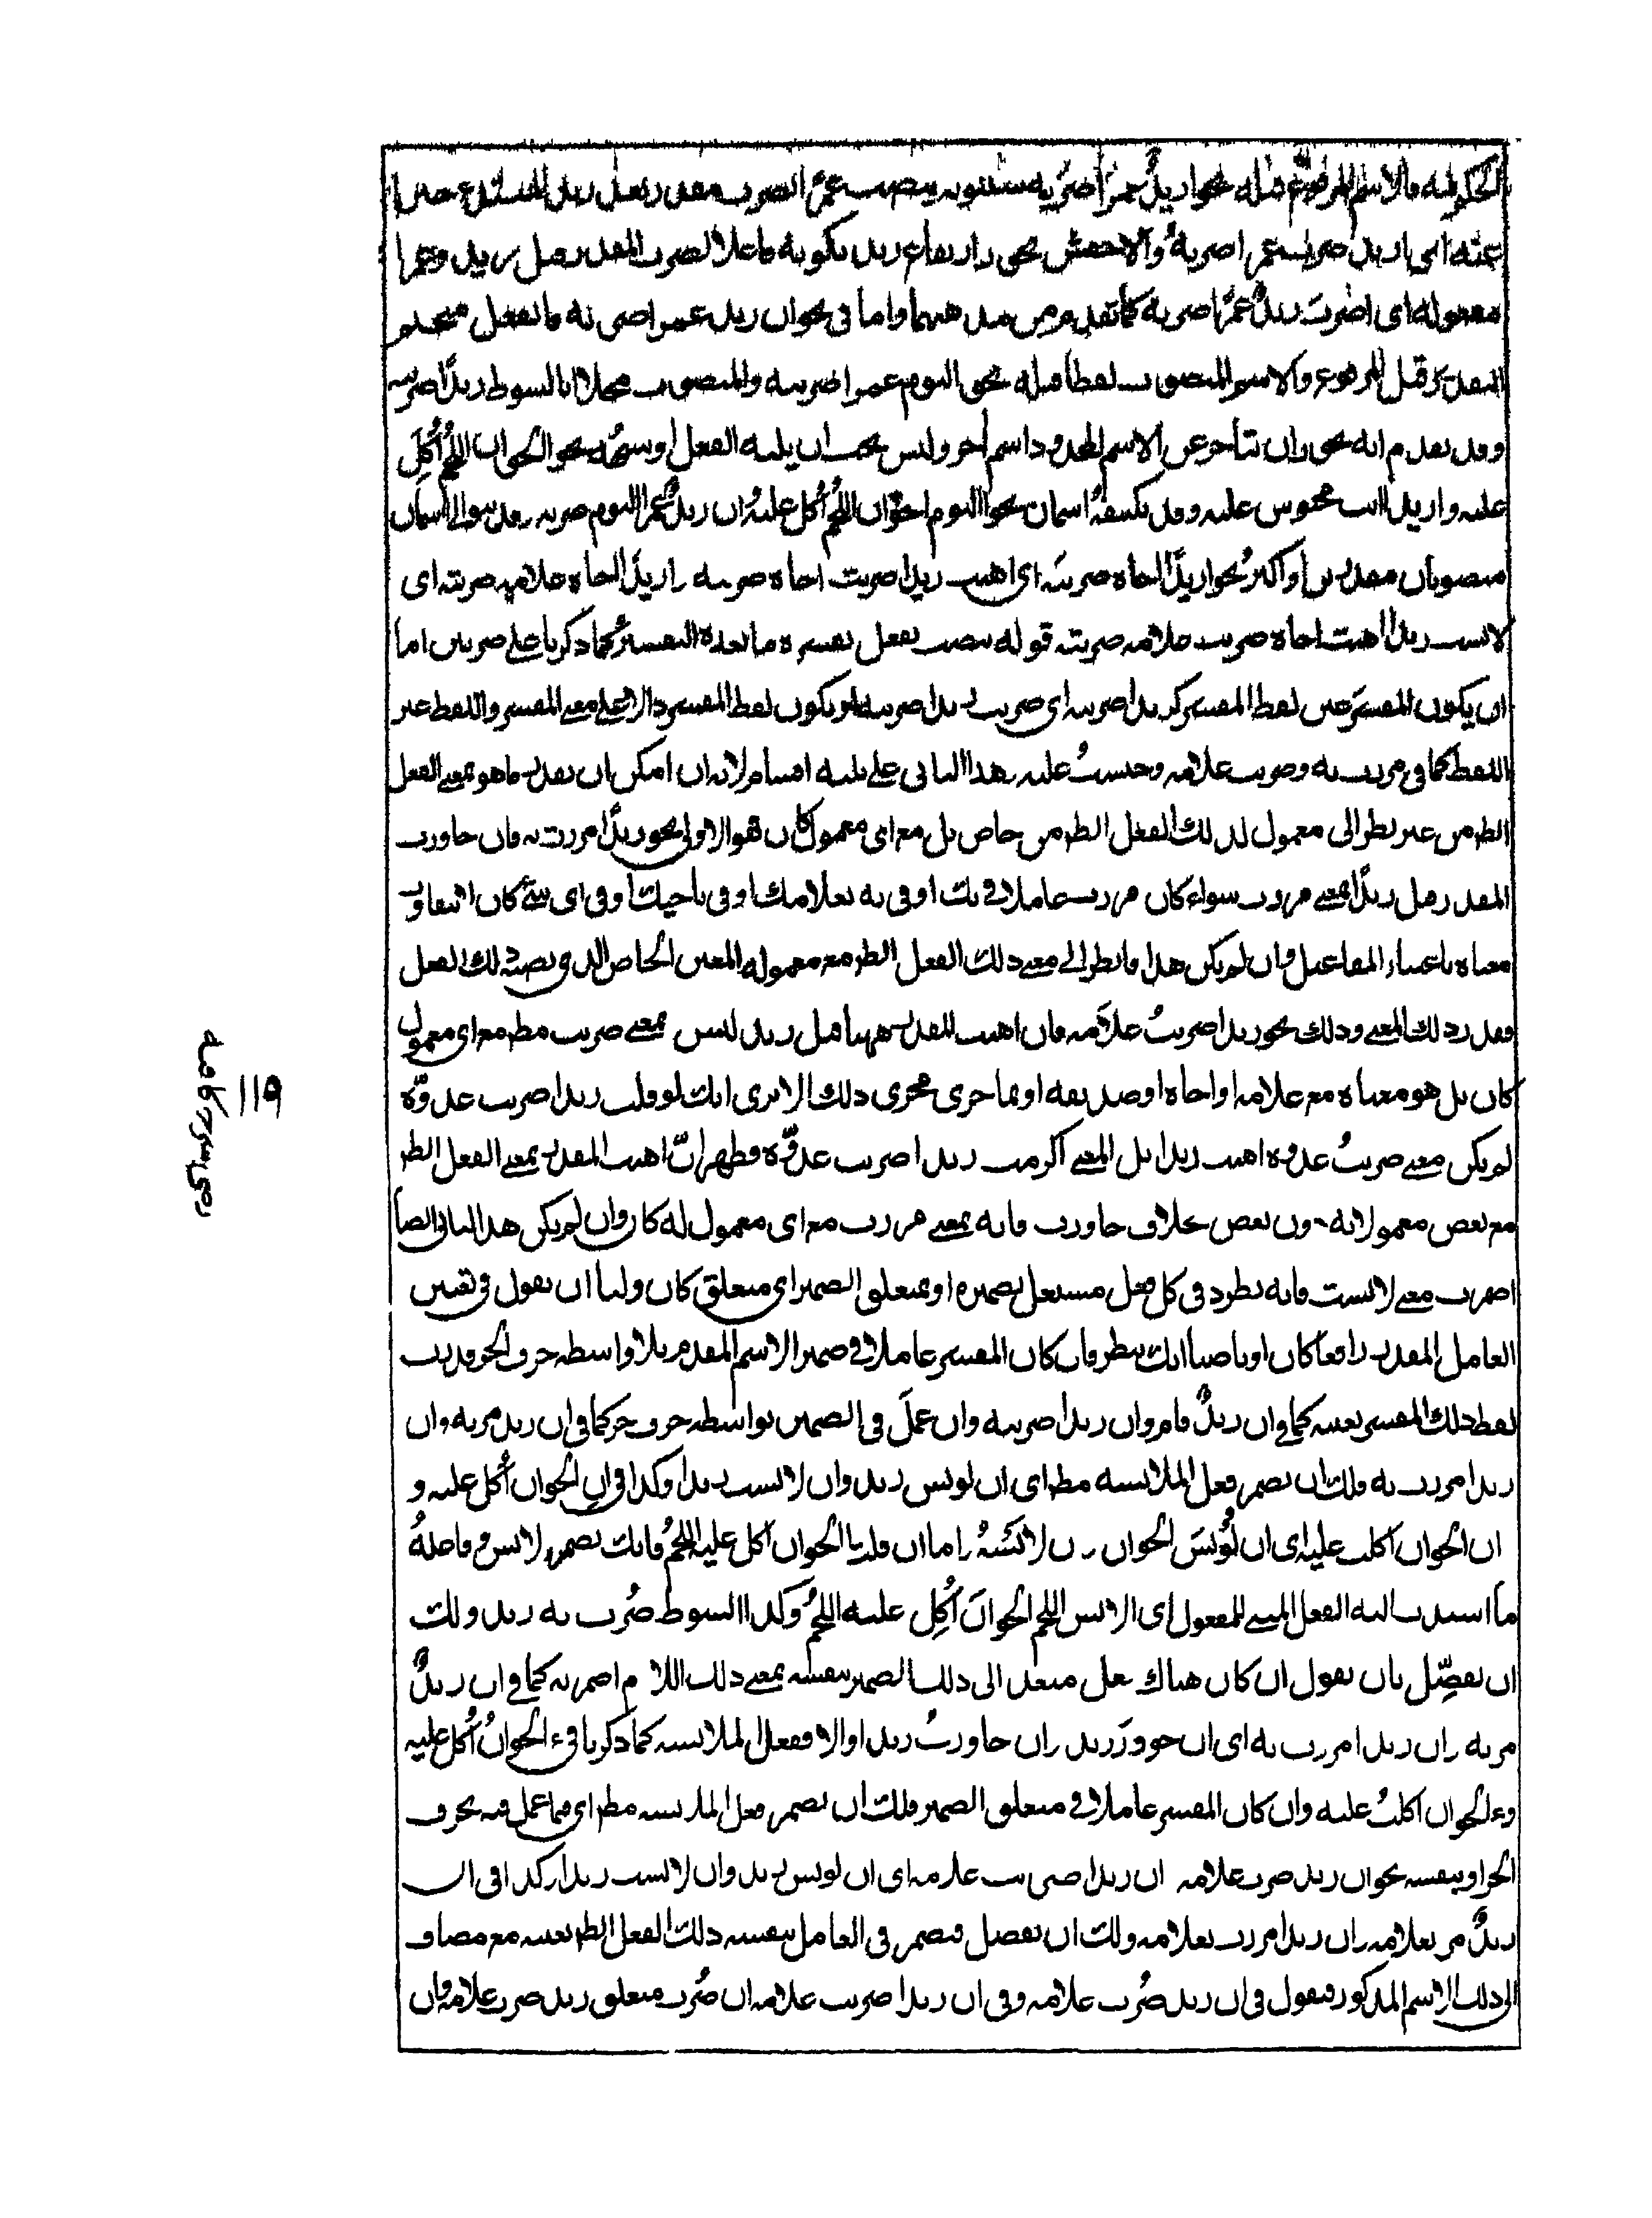 عمرا اضربه سيبويه ينصب عمرا
عنه اى ازيد ضربت عمرا اضربه والاخفش يجوز ارتفاع زيد بكونه فاعلا لضرب المقدر قبل زيد وعمرا
معموله اى اضرب زيد عمرا ضربه كما تقدم من مذهبهما واما فى نحو ان زيد عمرا ضربه فالفعل
المقدر قبل المرفوع والاسم المنصوب لفظا قبله نحو اليوم عمرا ضربته والمنصوب محلا ابالسوط زيدا ضربته
وقد تقدم انه يجوز ان يتاخر عن الاسم المحدود اسم آخر وليس يجب ان يليه الفعل او شبهه نحو الخوان اللحم أُكِل
عليه وازيدا انت محبوس عليه وقد يكتنفه اسمان نحو اليوم الخوان اللحم أكل عليه وان زيد عمرا اليوم ضربه وقد يتوالى اسمان
منصوبان مقدرين او اكثر نحو ازيدا اخاه ضربته اى اهنت زيدا ضربت اخاه ضربته وازيدا اخاه غلامه ضربته اى
لابست زيدا اهنت اخاه ضربت غلامه ضربته قوله ينصب بفعل يفسره ما بعده التفسير كما ذكرنا على ضربين اما
ان يكون المفسر عين لفظ المفسر كزيدا ضربته اى ضربت زيدا ضربته او يكون لفظ المفسر دالا على معنى المفسر واللفظ غير
اللفظ كما فى مررت به وضربت غلامه وحبست عليه هذا الثانى على ثلثه اقسام لانه ان امكن ان يقدر ما هو بمعنى الفعل
الظ من غير نظر الى معمول لذلك الفعل الظ من خاص بل مع اى معمول كان فهو الاولى نحو زيدا مررت به فان جاوزت
المقدر قبل زيدا بمعنى مررت سواء كان مررت عاملا فى بك او فى به بغلامك او فى باخيك او فى اى شئ كان اذ لا يتفاوت
معناه باعتبار المفاعيل وان لم يكن هذا فانظر الى معنى ذلك الفعل الظ مع معموله المعين الخاص الذى نصبه ذلك الفعل
فقدر ذلك المعنى وذلك نحو زيدا ضربت غلامه فان اهنت المقدر ههنا قبل زيد ليس بمعنى ضربت مط مع اى معمول
كان بل هو معناه مع غلامه او اخاه او صديقه او ما جرى مجرى ذلك الا ترى انك لو قلت زيدا ضربت عدوه
لم يكن معنى ضربت عدوه اهنت زيدا بل المعنى اكرمت زيدا ضربت عدوه فظهر ان اهنت المقدر بمعنى الفعل الظ
مع بعض معمولاته دون بعض بخلاف جاوزت فانه بمعنى مررت مع اى معمول له كان وان لم يكن هذا الثانى ايضا
اضمرت معنى لابست فانه يطرد فى كل فعل مشتغل بضميره او بمتعلق الضمير اى متعلق كان ولنا ان نقول فى تعيين
العامل المقدر رافعا كان او ناصبا انك تنظر فان كان المفسر عاملا فى ضمير الاسم المقدم بلا واسطه حرف الجر قدرت
لفظ ذلك المفسر بعينه كما فى ان زيد قام وان زيدا ضربته وان عمل فى الضمير بواسطه حرف جر كما فى ان زيد مر به وان
زيدا مررت به فلك ان تضمر فعل الملابسه مط اى ان لوبس زيد وان لابست زيدا وكذا فى ان الخوان أكل عليه و
ان الخوان اكلت عليه اى ان لوبس الخوان وان لابسته واما ان قلت الخوان اكل عليه اللحم فانك تضمر لابس وفاعله
ما اسند اليه الفعل المبنى للمفعول اى الابس اللحم الخوان أكل عليه اللحم وكذا السوط ضرب به زيد ولك
ان تفصّل بان تقول ان كان هناك فعل متعد الى ذلك الضمير بنفسه بمعنى ذلك اللازم اضمرته كما فى ان زيد
مر به وان زيدا مررت به اى ان جووز زيد وان جاوزت زيدا والا ففعل الملابسه كما ذكرنا فى الخوان أكل عليه
والخوان اكلت عليه وان كان المفسر عاملا فى متعلق الضمير فلك ان تضمر فعل الملابسه مط اى فيما عمل فيه بحرف
الجر او بنفسه نحو ان زيد ضرب غلامه ان زيدا ضربت غلامه اى ان لوبس زيد وان لابست زيدا وكذا فى ان
زيد مر بغلامه وان زيدا مررت بغلامه ولك ان تفصل فتضمر فى العامل بنفسه ذلك الفعل الظ بعينه مع مضاف
الى ذلك الاسم المذكور فتقول فى ان زيد ضرب غلامه وفى ان زيدا ضربت غلامه ان ضرب متعلق زيد ضرب غلامه وان
١١٩